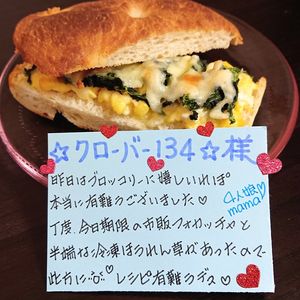 ☆クローバー134☆様
昨日はブロッコリーに嬉しいれぽ
本当に有難うございました♡
4人娘♡
mama
丁度、今日期限の市販フォカッチャと
半端な冷凍ほうれん草があったので
此方に…♡レシピ有難うデス♡